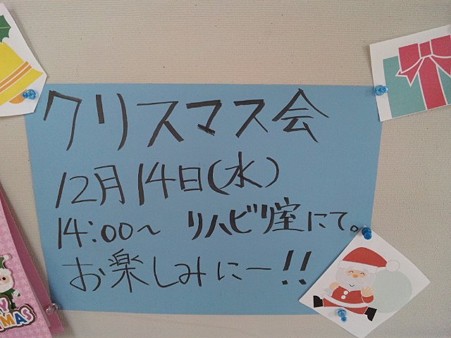 クリスマス会
12月14日(水)
14:00〜 リハビリ室にて。
お楽しみにー!!
MAS